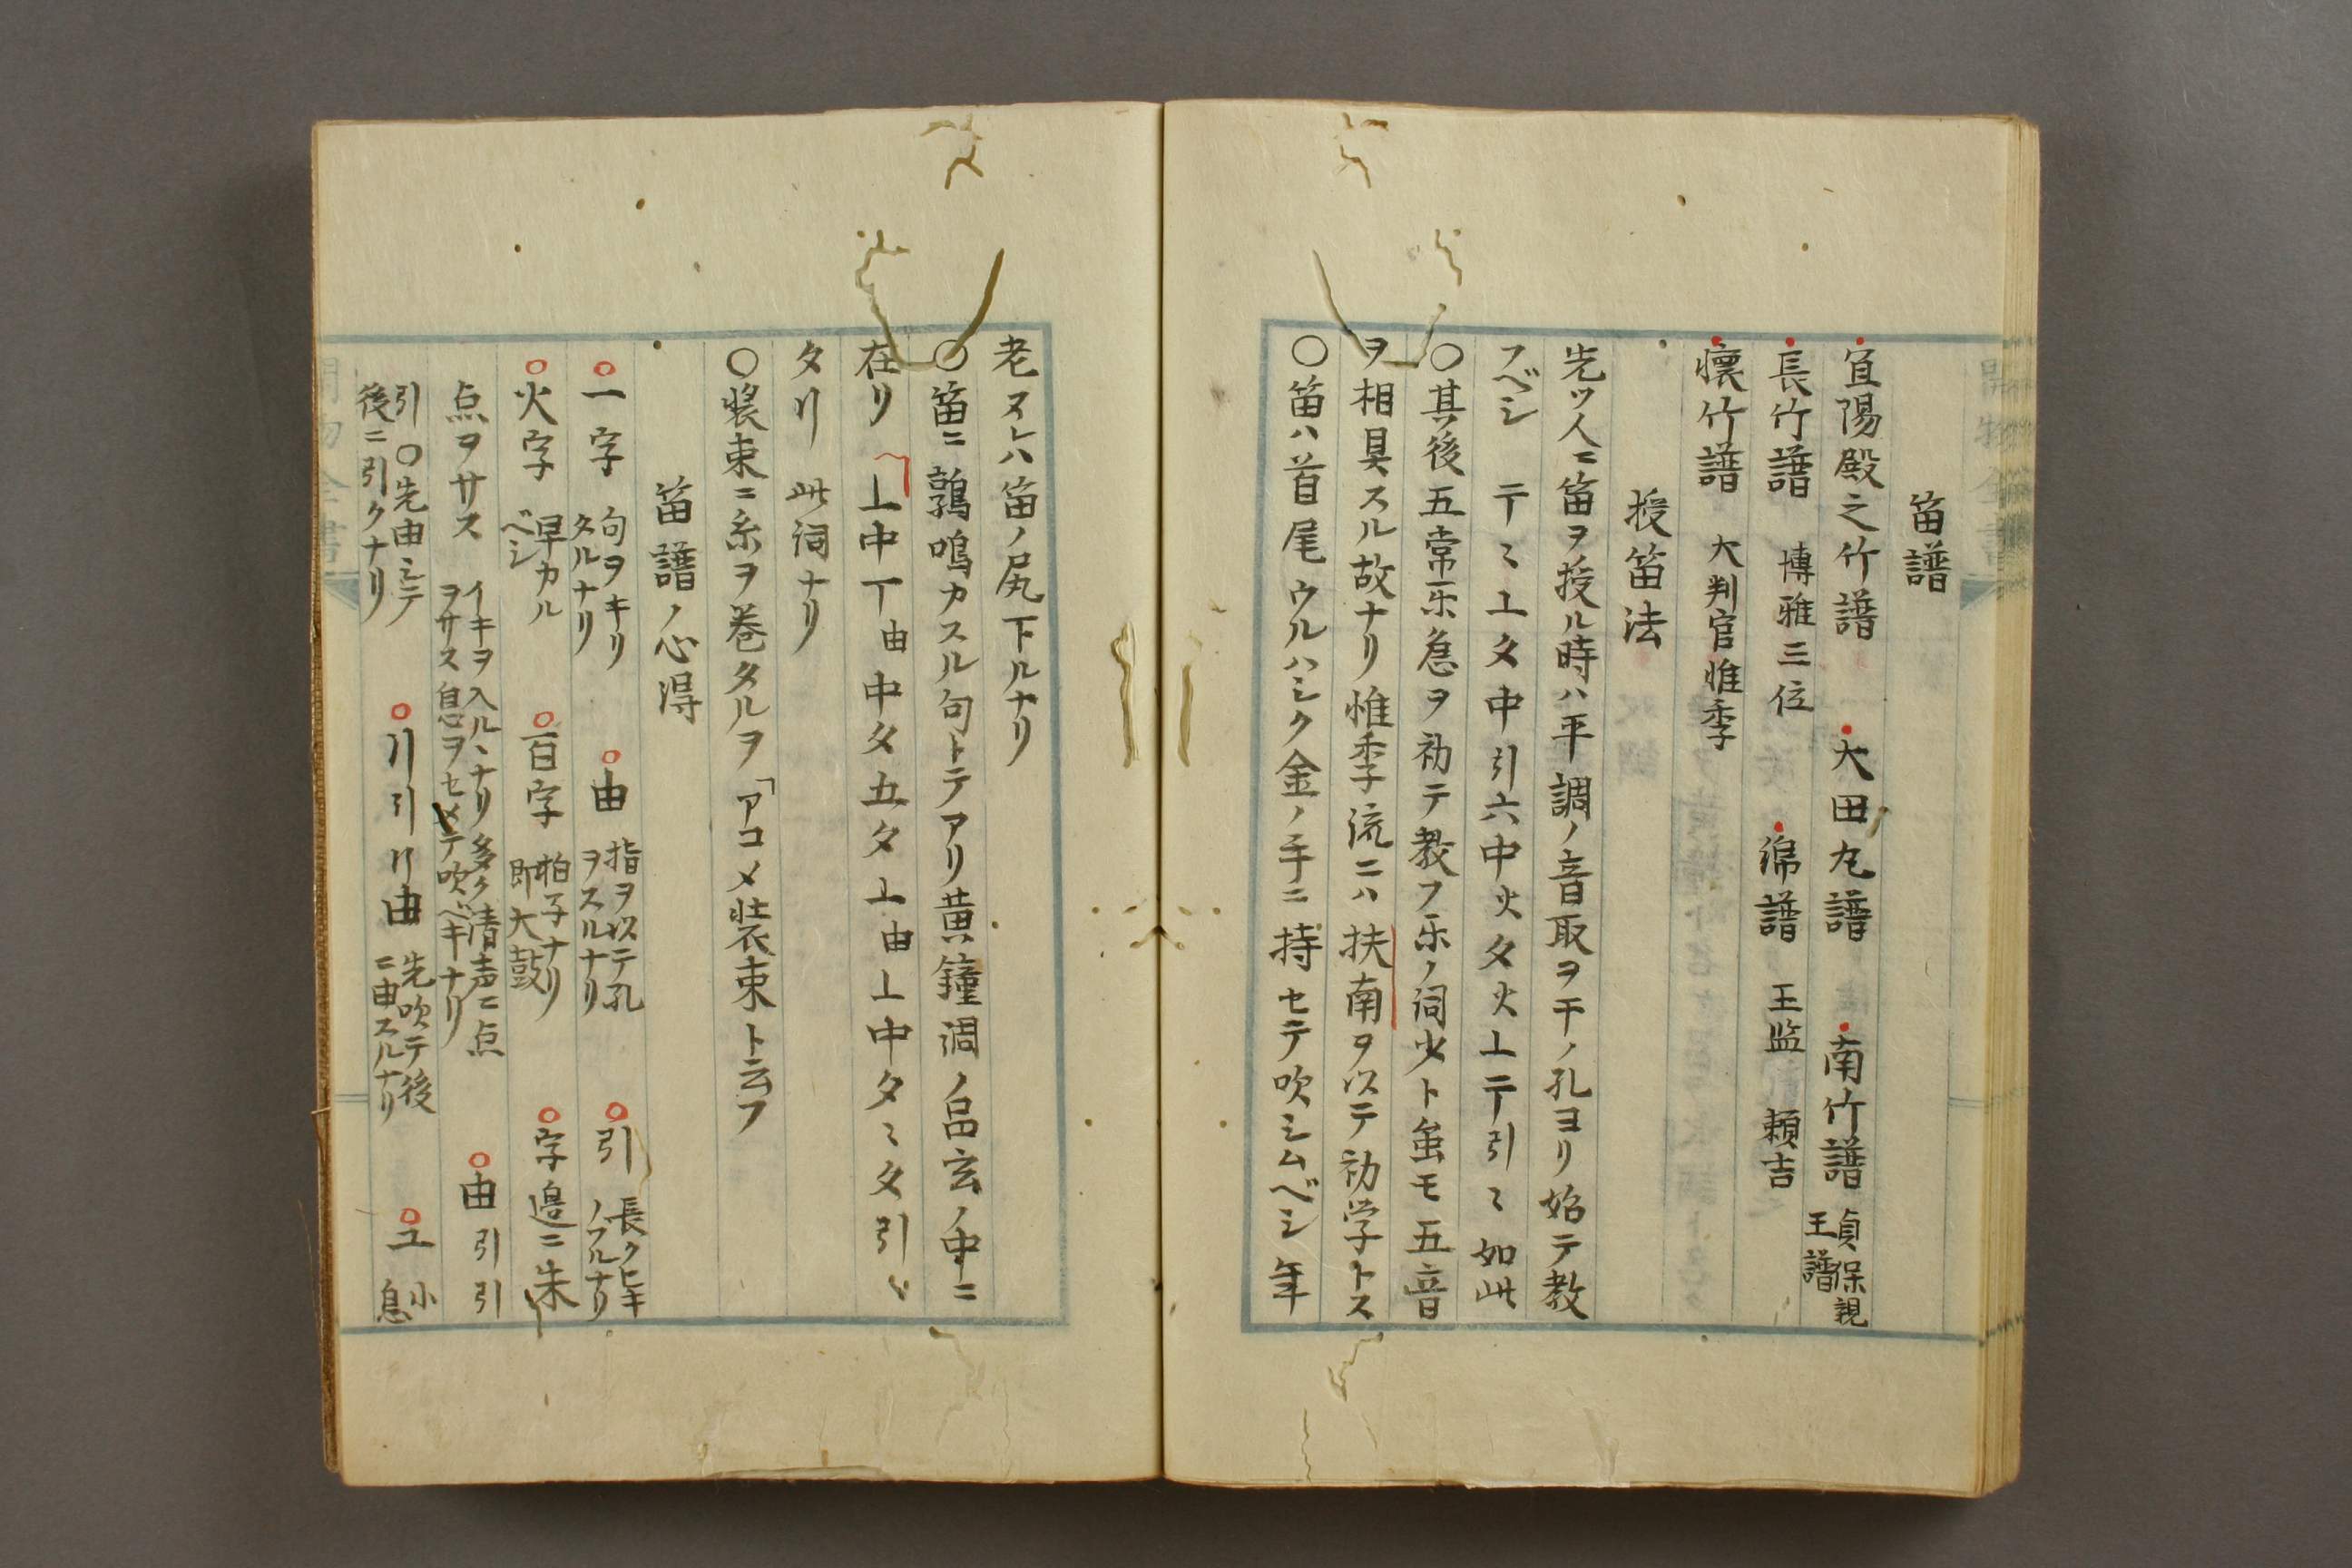 笛譜
宜陽殿之竹譜　大田丸譜　南竹譜 貞保親王譜
長竹譜 博雅三位　譜 王監 頼吉
懐竹譜 大判官惟季
授笛法
先ツ人ニ笛ヲ授ル時ハ平調ノ音取ヲ干ノ孔ヨリ始テ教
フベシ　〒ミ丄夕中引六中火夕火丄〒引ミ如此
〇其後五常楽急ヲ初テ教フ楽ノ詞少ト虽モ五音
ヲ相具スル故ナリ惟季流ニハ扶南ヲ以テ初学トス
〇笛ハ首尾ウルハシク金ノ手ニ持セテ吹シムベシ年
老スレハ笛ノ尻下ルナリ
〇笛ニ鶉鳴カスル句トテアリ黄鐘調ノ品玄ノ中ニ
在リ　丄中丅由中夕五夕丄由丄中夕ミ夕引〻
タリ　此詞ナリ
〇装束ニ糸ヲ巻タルヲ「アコメ装束ト云フ
笛譜ノ心得
〇一字 句ヲキリタルナリ　〇由 指ヲ以テ孔ヲスルナリ　〇引 長クヒキノフルナリ
〇火字 早カルベシ　〇百字 拍子ナリ即大鼓　〇字邉ニ朱
点ヲサス イキヲ入ルヽナリ多ク清声ニ点ヲサス息ヲセメテ吹ベキナリ　〇由引引
引〇先由シテ後ニ引クナリ　〇リ引リ由 先吹テ後ニ由スルナリ　〇エ 小息